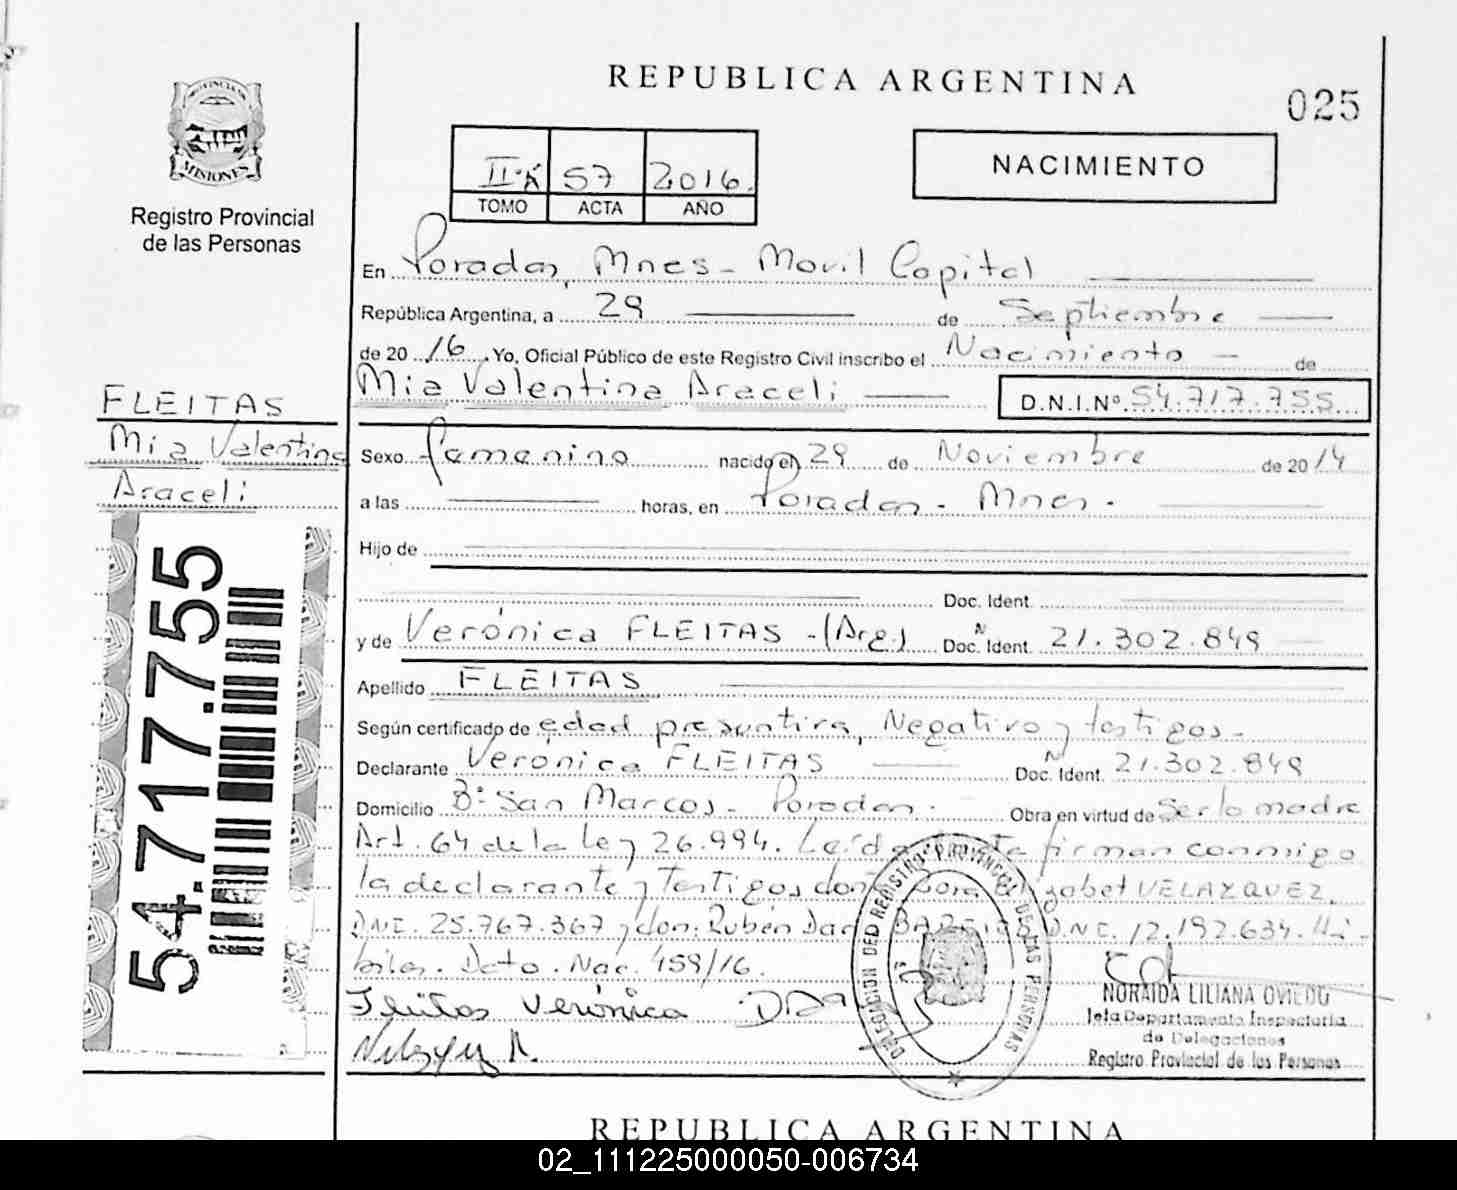 REPUBLICA ARGENTINA
025
PROVINCIA DE MISIONES
Registro Provincial
de las Personas
II·A 57 2016.
TOMO ACTA AÑO
NACIMIENTO
En Posadas, Mnes - Movil Capital
República Argentina, a 29 de Septiembre
de 20 16 . Yo, Oficial Público de este Registro Civil inscribo el Nacimiento de
Mia Valentina Araceli D.N.I.Nº 54.717.755
FLEITAS
Mia Valentina
Araceli
54.717.755
Sexo femenino nacido el 29 de Noviembre de 20 14
a las horas, en Posadas - Mnes -
Hijo de
Doc. Ident.
y de Verónica FLEITAS - (Arg.) Doc. Ident. N 21.302.849
Apellido FLEITAS
Según certificado de edad presuntiva, Negativo y testigos -
Declarante Verónica FLEITAS Doc. Ident. N 21.302.849
Domicilio Bº San Marcos - Posadas - Obra en virtud de Ser la madre
Art. 64 de la Ley 26.994. Leída firman conmigo
la declarante y testigos VELAZQUEZ,
DNI. 25.767.367 y don: Rubén DNI. 12.192.634. Há-
biles. Dcto. Nac. 459/16.
Fleitas Verónica
DELEGACION DEL REGISTRO PROVINCIAL DE LAS PERSONAS
NORAIDA LILIANA OVIEDO
Jefa Departamento Inspectoria
de Delegaciones
Registro Provincial de las Personas
REPUBLICA ARGENTINA
02_111225000050-006734